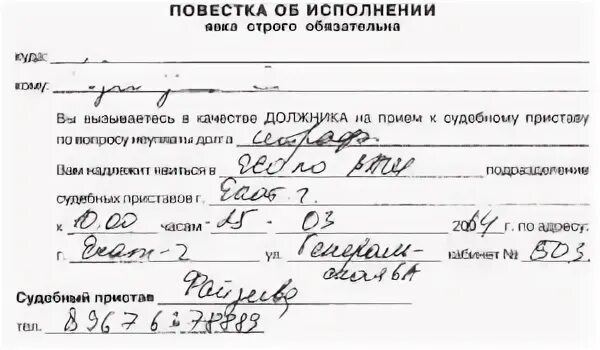 ПОВЕСТКА ОБ ИСПОЛНЕНИИ
явка строго обязательна
куда:
кому:
Вы вызываетесь в качестве ДОЛЖНИКА на прием к судебному приставу
по вопросу неуплаты долга штраф
Вам надлежит явиться в подразделение
судебных приставов г. Екат-г.
к 10.00 часам 25 - 03 2014 г. по адресу:
г. Екат-г ул. Генераль-
ская 6А кабинет № 503.
Судебный пристав
тел.